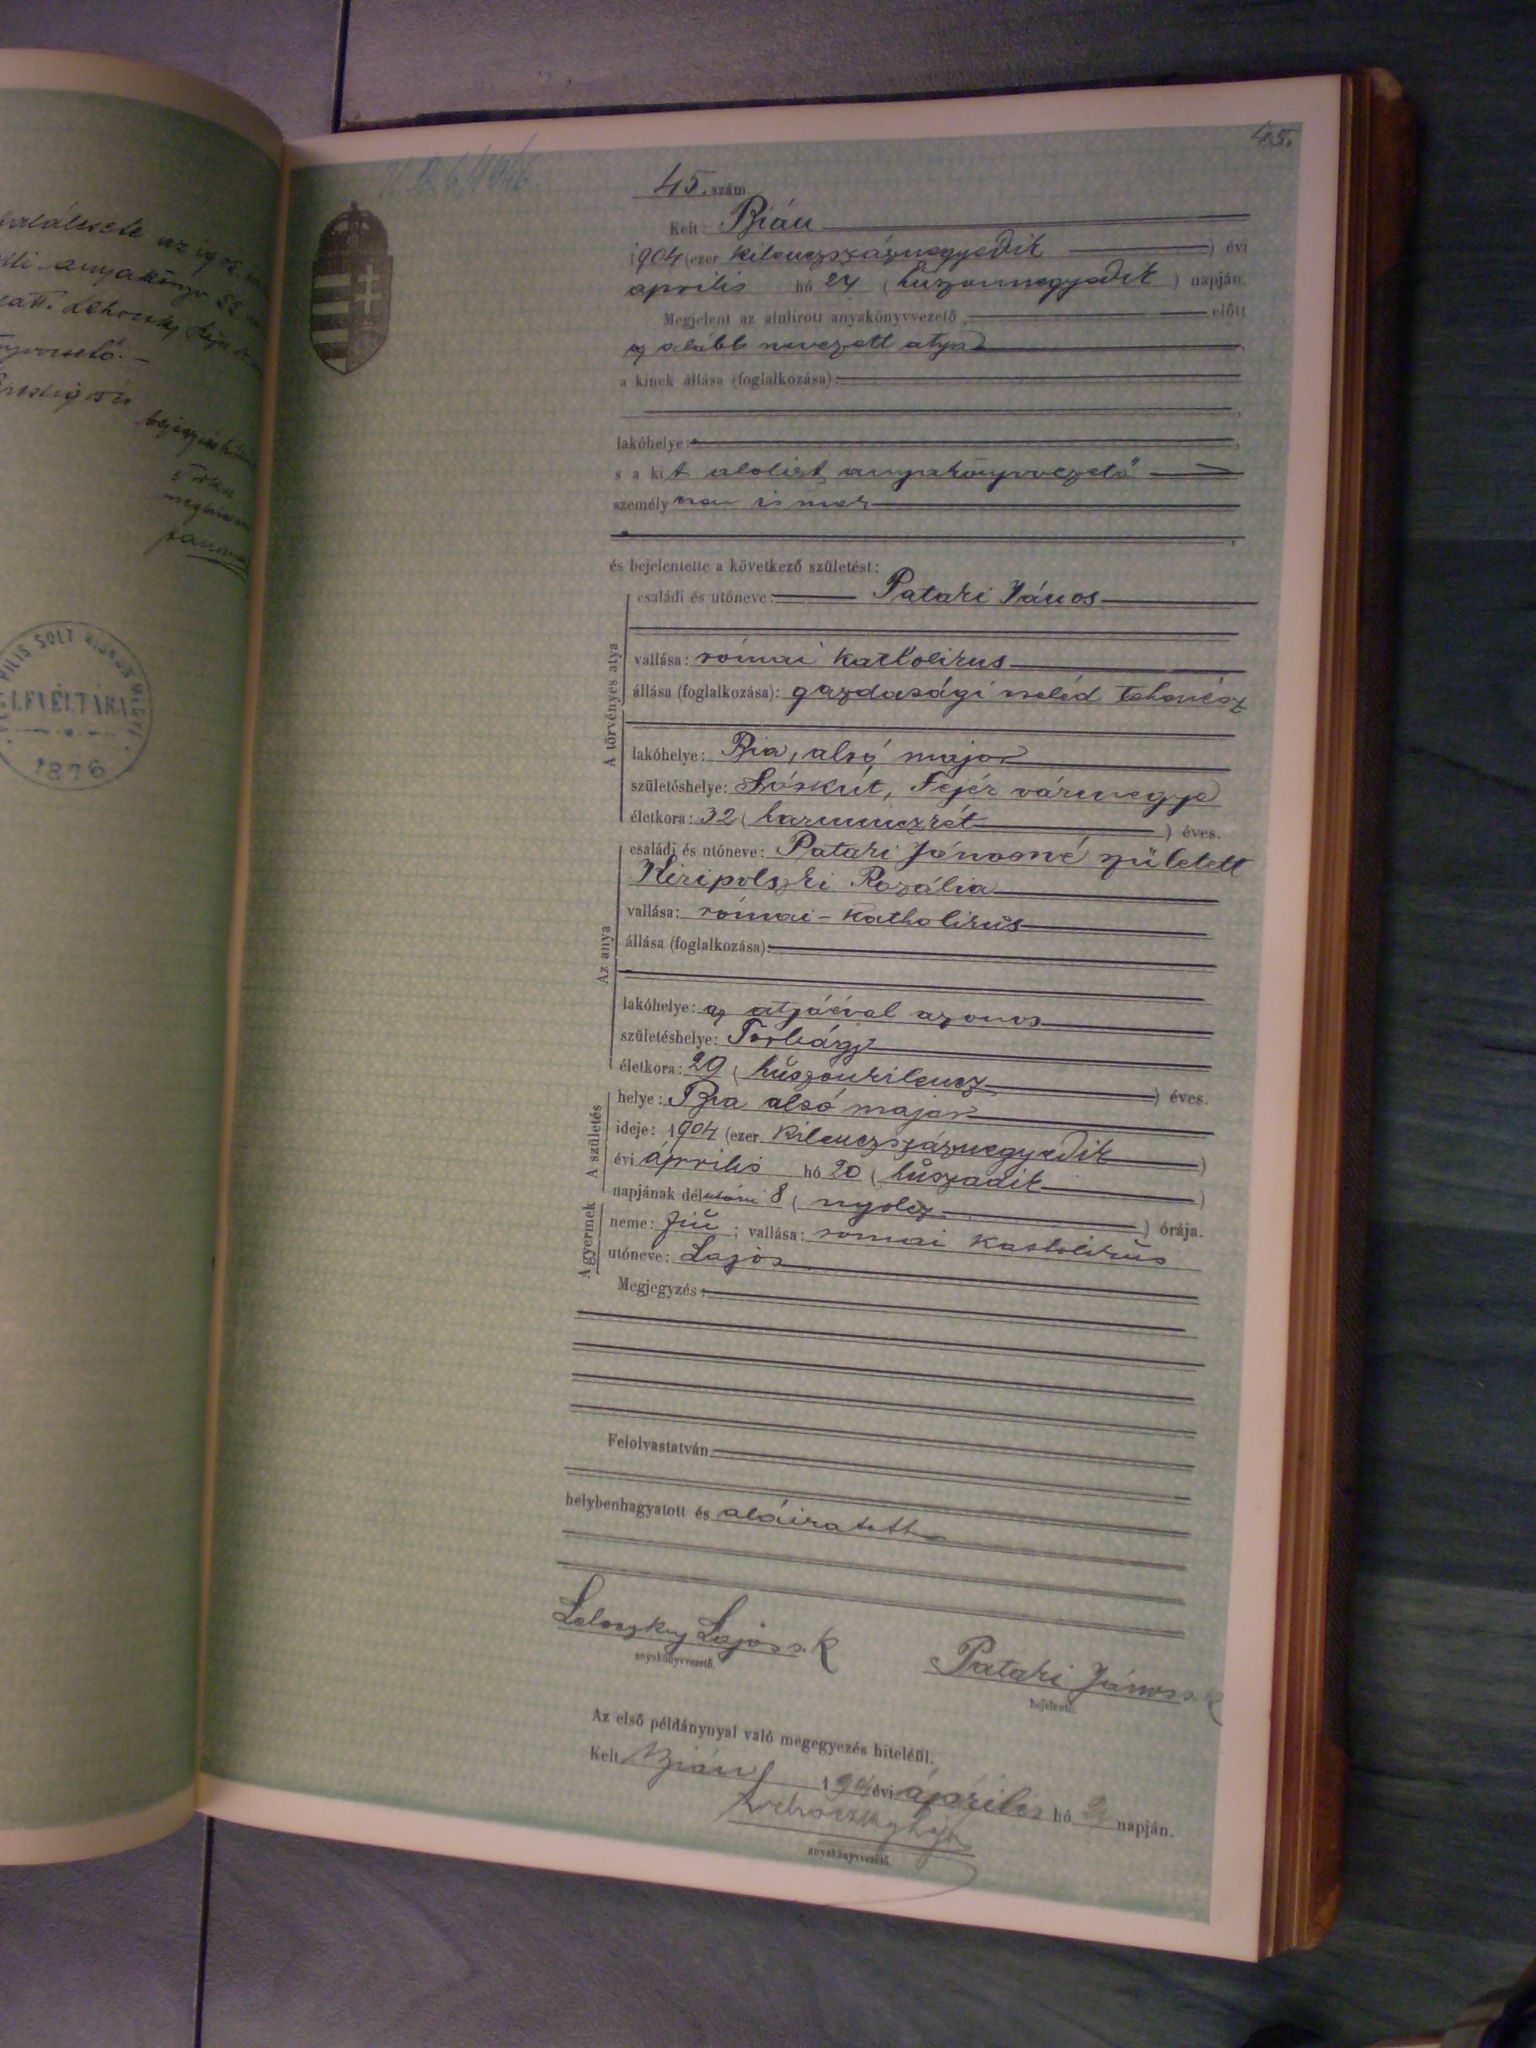 halálesete az 1905.
anyakönyv 55
alatt. Lehoczky Lajos
PILIS SOLT KISKUN
LEVÉLTÁRA
1876
45.
45. szám
Kelt: Bián
1904 (ezer kilenczszáznegyedik ) évi
április hó 24 ( huszonnegyedik ) napján.
Megjelent az alulirott anyakönyvvezető előtt
az alább nevezett atya
a kinek állása (foglalkozása):
lakóhelye:
s a kit alolirt anyakönyvvezető
személyesen ismer
és bejelentette a következő születést:
A törvényes atya
családi és utóneve: Pataki János
vallása: római katholikus
állása (foglalkozása): gazdasági cseléd tehenész
lakóhelye: Bia, alsó major
születéshelye: Sóskút, Fejér vármegye
életkora: 32 ( harminczkét ) éves.
Az anya
családi és utóneve: Pataki Jánosné született
Kiripolszki Rozália
vallása: római-katholikus
állása (foglalkozása):
lakóhelye: az atyáéval azonos
születéshelye: Torbágy
életkora: 29 ( huszonkilencz ) éves.
A születés
helye: Bia alsó major
ideje: 1904 (ezer kilenczszáznegyedik )
évi április hó 20 ( huszadik )
napjának délutáni 8 ( nyolcz ) órája.
A gyermek
neme: fiu ; vallása: római katholikus
utóneve: Lajos
Megjegyzés:
Felolvastatván
helybenhagyatott és aláiratott
Lehoczky Lajos s. k
anyakönyvvezető.
Pataki János s. k
bejelentő.
Az első példánynyal való megegyezés hiteléűl.
Kelt Bián 1904 évi április hó 24 napján.
Lehoczky Lajos
anyakönyvvezető.